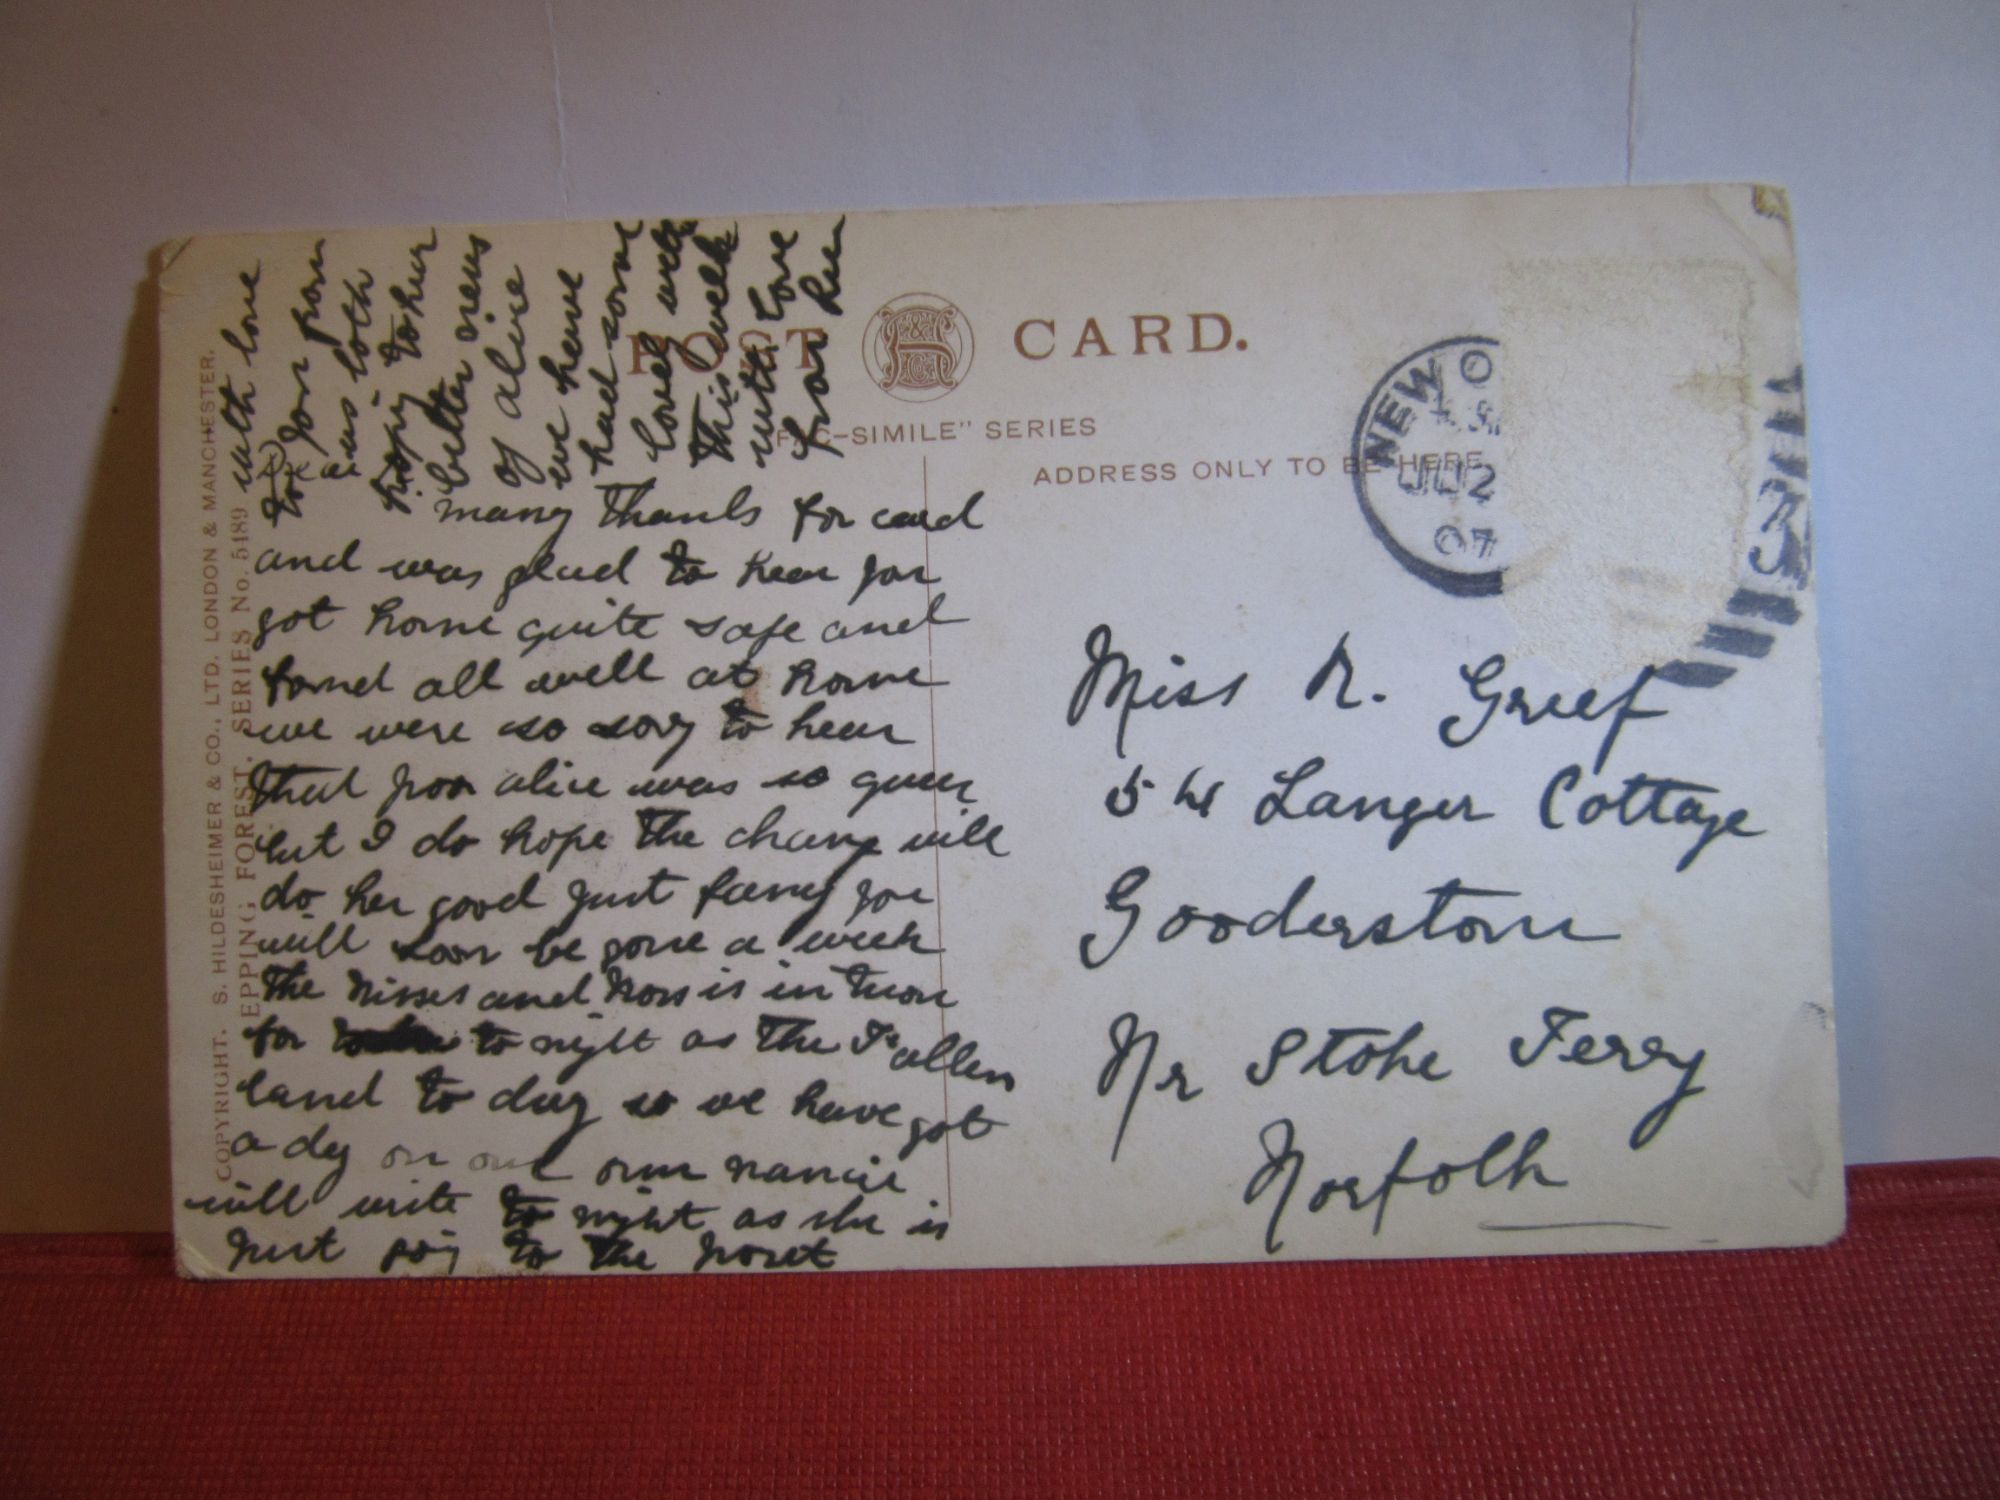 POST CARD.
"FAC-SIMILE" SERIES
ADDRESS ONLY TO BE HERE
COPYRIGHT. S. HILDESHEIMER & CO., LTD. LONDON & MANCHESTER.
EPPING FOREST. SERIES No. 5189
NEW
JU 2
07
3
many thanks for card
and was glad to hear you
got home quite safe and
found all well at home
we were so sory to hear
that poor alice was so queer
but I do hope the change will
do her good just fancy you
will soon be gone a week
the misses and boss is in town
for to night as the
land to day so we have got
a dy on our own nancie
will write to night as she is
just goig to the
with love
to you from
us both
hopig to her
better news
of alice
we have
had some
lovell
this week
with love
from
Miss R. Greef
5 W Langer Cottage
Gooderstone
Nr Stoke Ferry
Norfolk